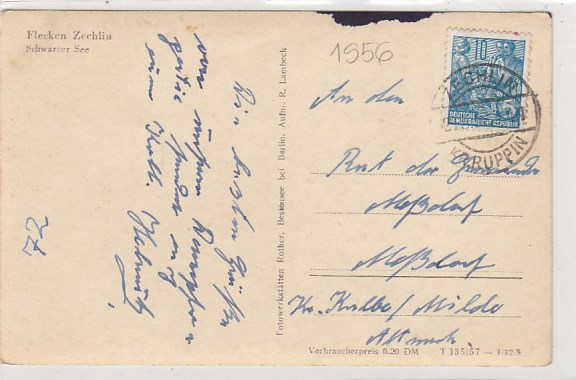 Flecken Zechlin
Schwarzer See
1956
Die besten Grüße
von unserem
sendet
72
Fotowerkstätten Rother, Bestensee bei Berlin. Aufn.: R. Lambeck
10
DEUTSCHE
DEMOKRATISCHE REPUBLIK
ZECHLIN
RUPPIN
An den
Rat der Gemeinde
Meßdorf
Meßdorf
Kr. Kalbe/Milde
Altmark.
Verbraucherpreis 0.20 DM T 135/57 — 1/12/5